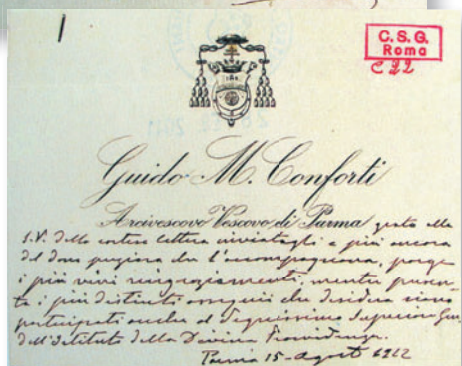 1
C.S.G.
Roma
C 22
Guido M. Conforti
Arcivescovo Vescovo di Parma grato alla
S.V. della cortese lettera inviatagli e più ancora
del dono che l'accompagnava, porge
i più vivi ringraziamenti, mentre presen-
ta i più distinti ossequii che desidera siano
partecipati anche al Degnissimo Superiore Gen.
dell'Istituto della Divina Provvidenza.
Parma 15 - Agosto